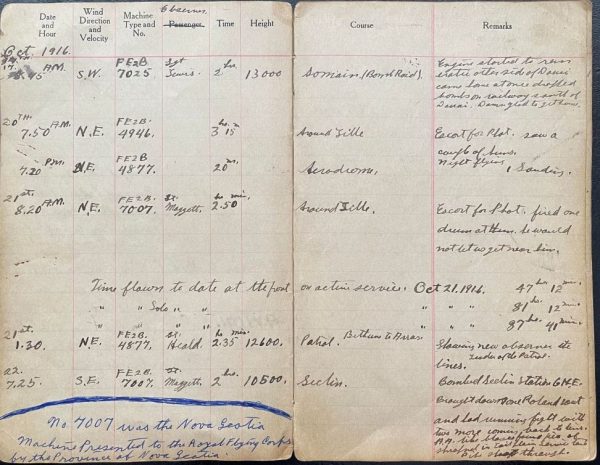 Date and Hour
Wind Direction and Velocity
Machine Type and No.
Observer
Passenger
Time
Height
Course
Remarks
Oct. 1916.
17th A.M. 8.45 S.W. FE2B. 7025 Sgt 2 hrs. 13000 Somain. (Bomb Raid). Engine started to run
other side of Douai
came home at once dropped
bombs on railway south of
Douai. Managed to get home.
20TH. 7.50 A.M. N.E. FE2B. 4946. 3 hrs. 15 m Around Lille Escort for Phot. saw a
couple of Huns.
7.20 P.M. N.E. FE2B 4877. 20 m. Aerodrome. Night flying 1 Landing.
21st. 8.20 A.M. N.E. FE2B. 7007. Lt. 2.50 hr min. Around Lille. Escort for Phot. fired one
drum at Hun. he would
not let us get near him.
Time flown to date at the front on active service. Oct 21.1916. 47 hrs. 12 min.
" " Solo " " " " " 81 hr. 12 min.
" " " " " " 87 hr 41 min.
21st. 1.30. N.E. FE2B. 4877. Lt. Heald. 2.35 hr min. 12600. Patrol. Bethune to Arras. Showing new observer the
lines. Leader of the Patrol.
22. 7.25. S.E. FE2B. 7007. Lt. 2 hrs. 10500. Seclin. Bombed Seclin Station G.H.E.
Brought down one Roland scout
and had running fight with
two more coming back to lines.
shot through.
No. 7007 was the Nova Scotia
Machine Presented to the Royal Flying Corps
by the Province of Nova Scotia.